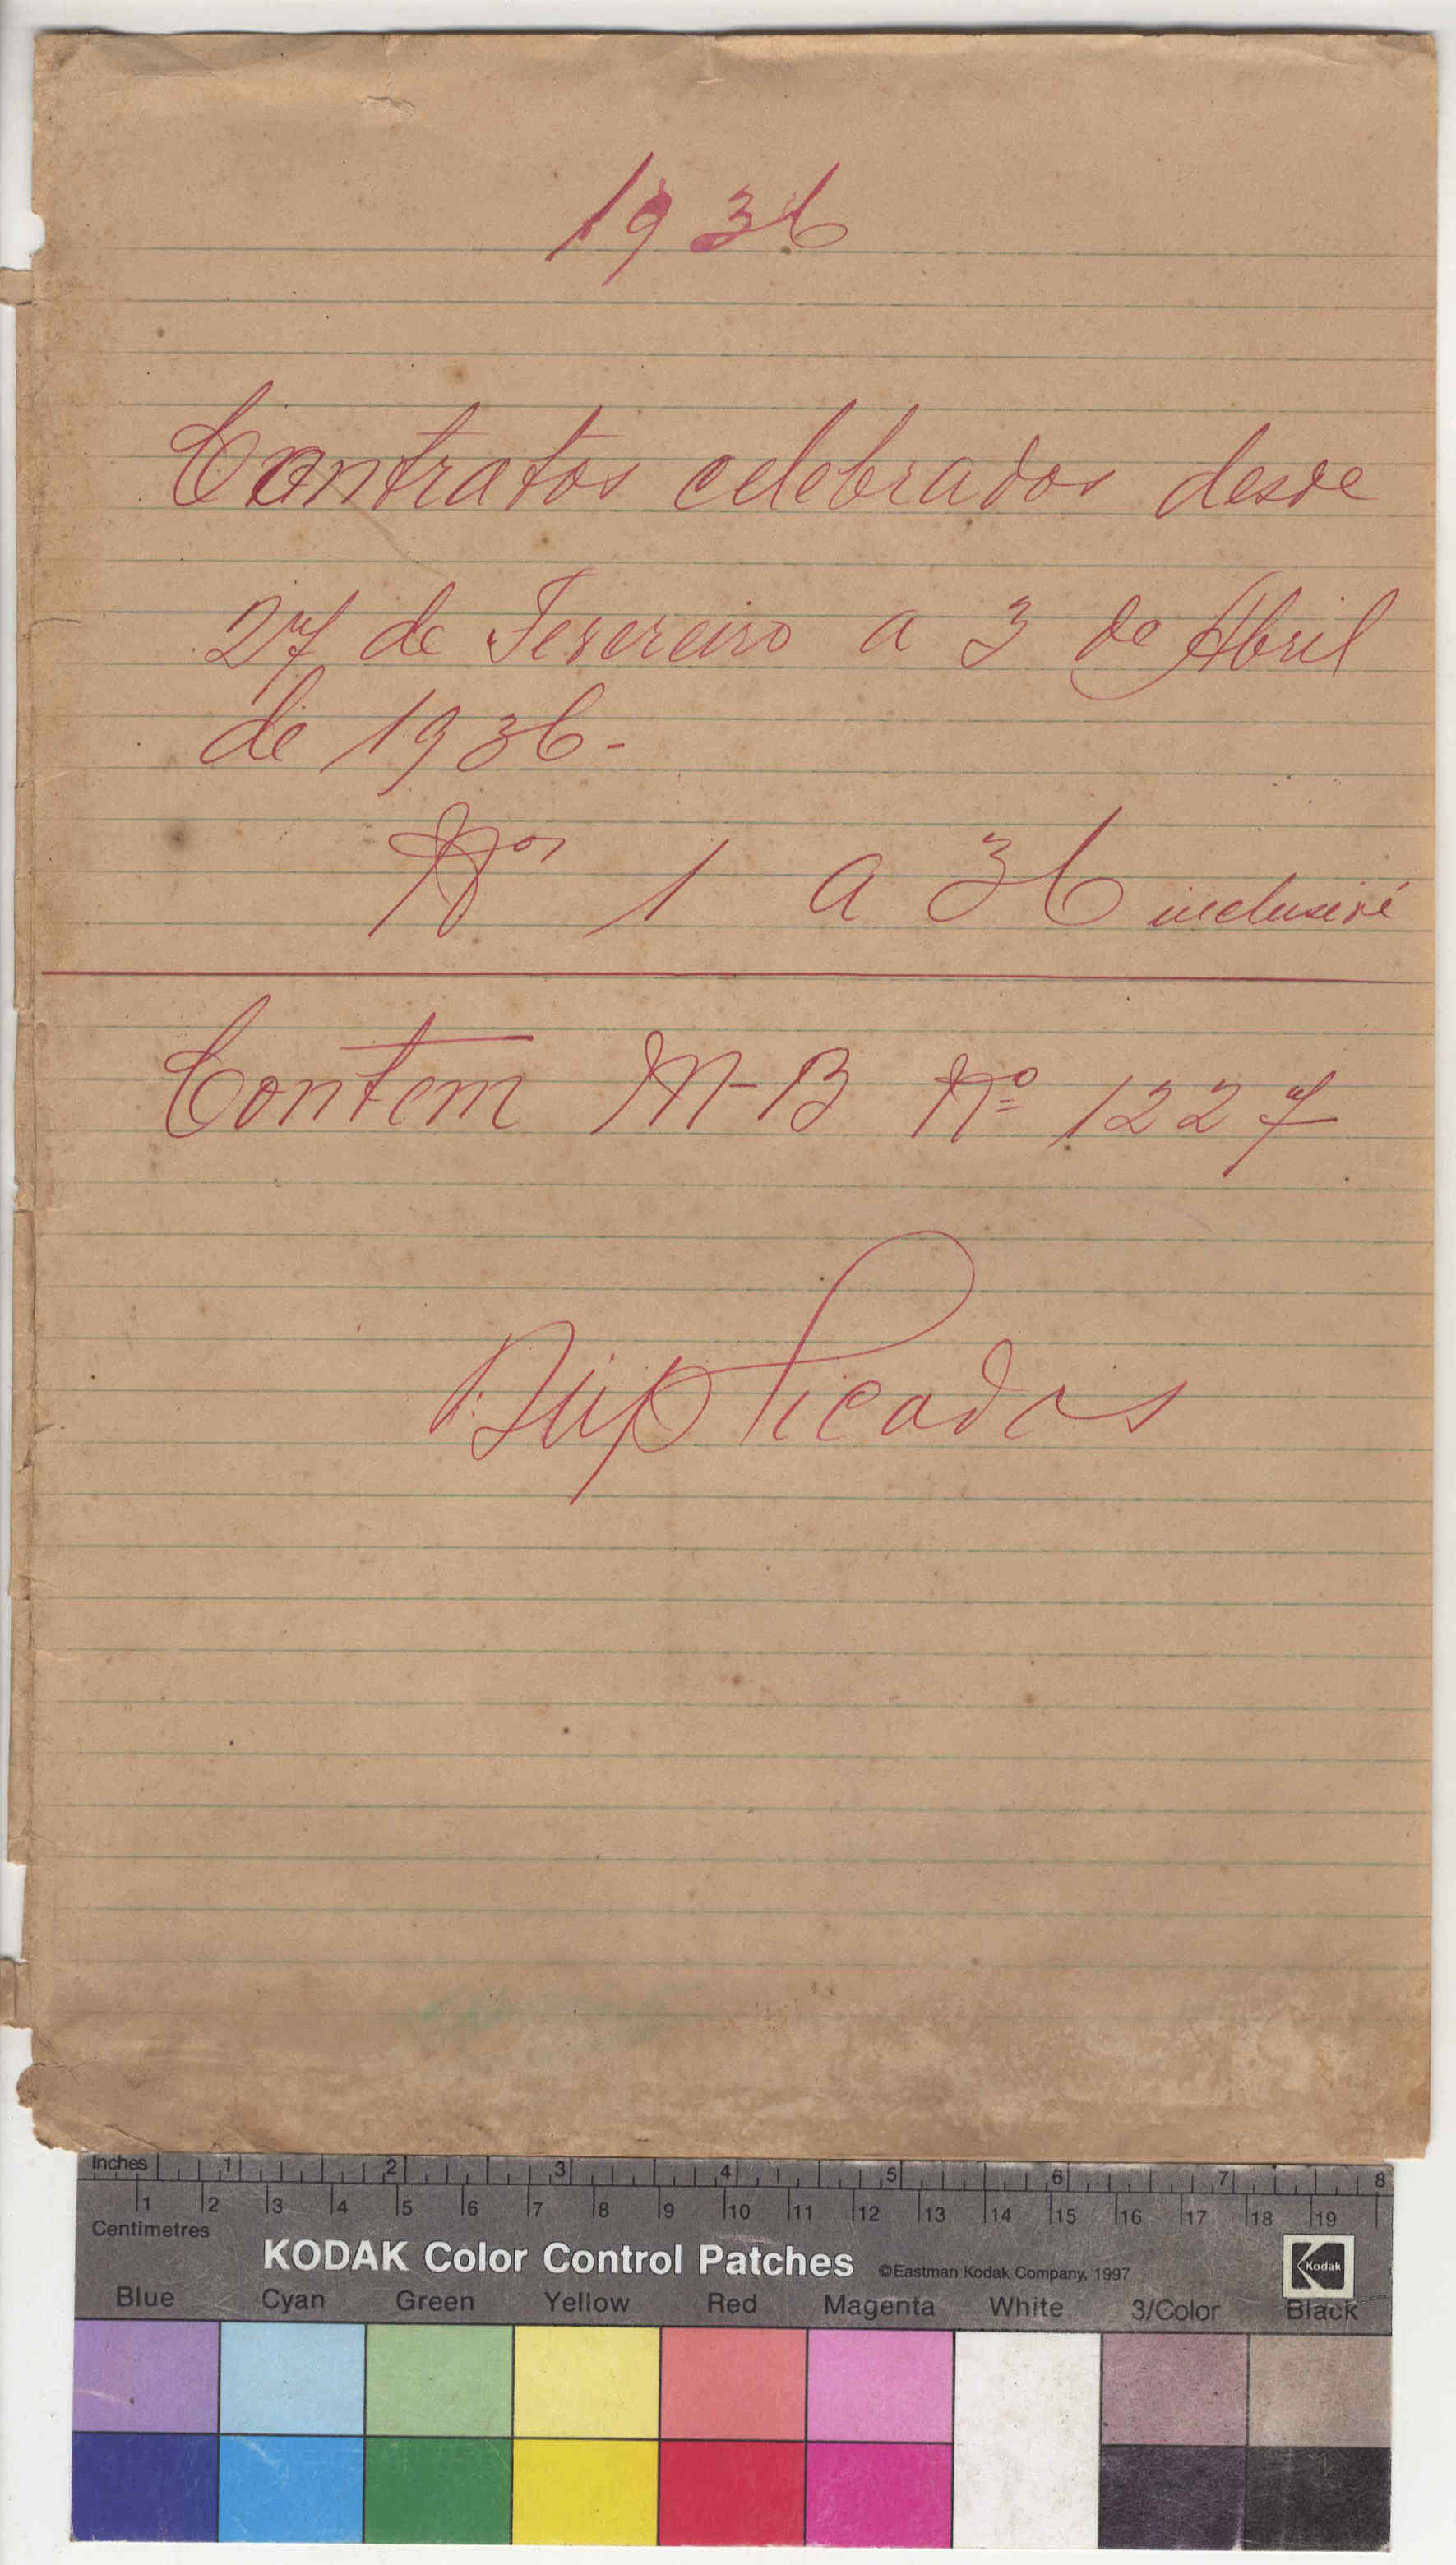 1936
Contratos celebrados desde
27 de Fevereiro a 3 de Abril
de 1936-
Nos 1 a 36 inclusivé
Contem M-B Nº 1227
Duplicados
Inches 1 2 3 4 5 6 7 8
1 2 3 4 5 6 7 8 9 10 11 12 13 14 15 16 17 18 19
Centimetres
KODAK Color Control Patches ©Eastman Kodak Company, 1997 Kodak
Blue Cyan Green Yellow Red Magenta White 3/Color Black